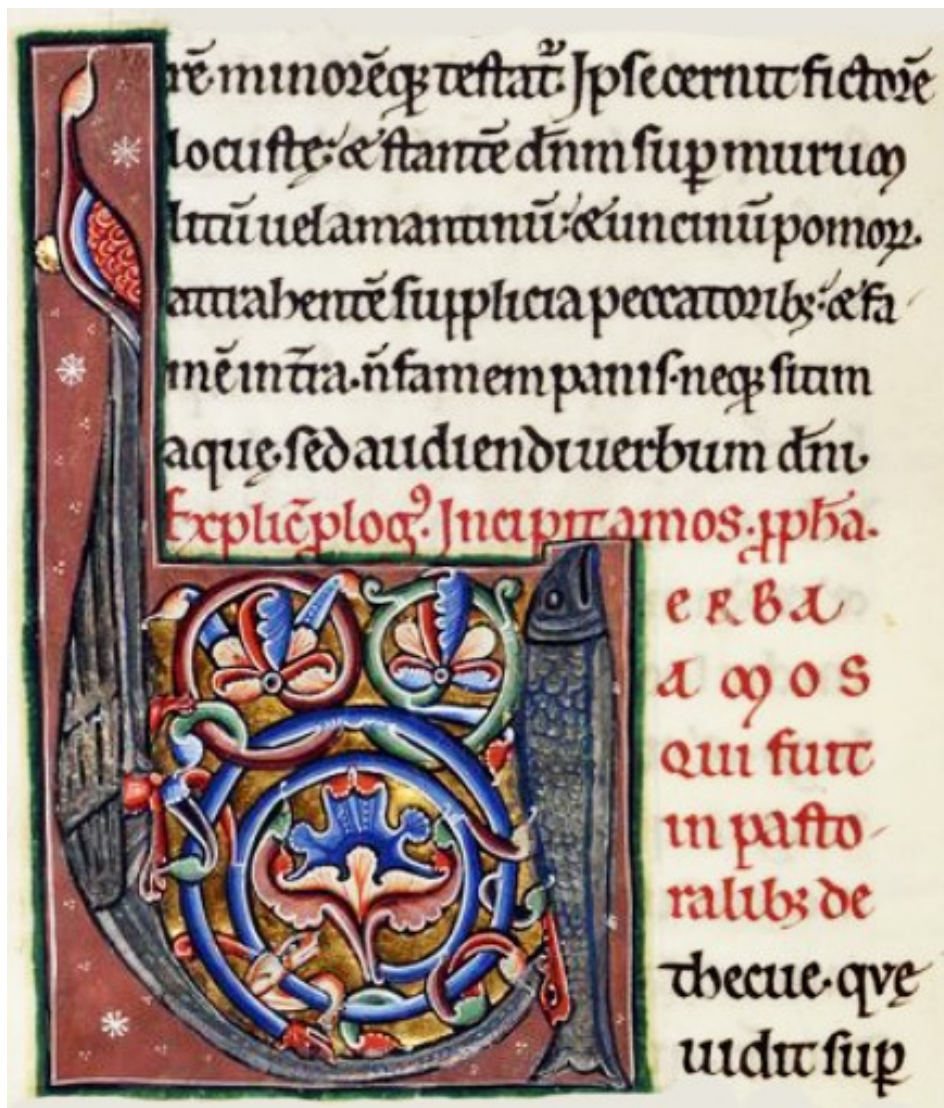 rē minorēq; testat᷑. Ipse cernit fictorē
locustę: & stantē dn̄m sup murum
litū uel amantinū: & uncinū pomoꝝ.
attrahentē supplicia peccatorib;: & fa
mē in t̄ra. n̄ famem panis. neq; sitim
aquę. sed audiendi uerbum dn̄i.
Explic̄ plogꝰ. Incipit amos. ꝓph̄a.
V ERBA
AMOS
QUI fuit
in pasto
ralib; de
thecue. quę
uidit sup